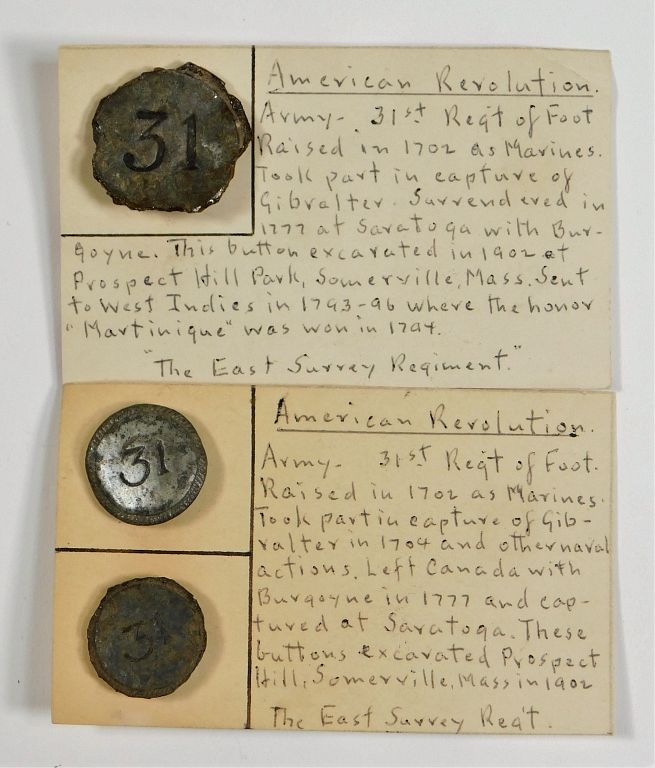 31
American Revolution.
Army- 31st Reg't of Foot
Raised in 1702 as Marines.
Took part in capture of
Gibralter. Surrendered in
1777 at Saratoga with Bur-
goyne. This button excavated in 1902 at
Prospect Hill Park, Somerville, Mass. Sent
to West Indies in 1793-96 where the honor
"Martinique" was won in 1794.
"The East Surrey Regiment."
31
31
American Revolution.
Army- 31st Reg't of Foot.
Raised in 1702 as Marines.
Took part in capture of Gib-
ralter in 1704 and other naval
actions. Left Canada with
Burgoyne in 1777 and cap-
tured at Saratoga. These
buttons excavated Prospect
Hill, Somerville, Mass in 1902
The East Surrey Reg't.